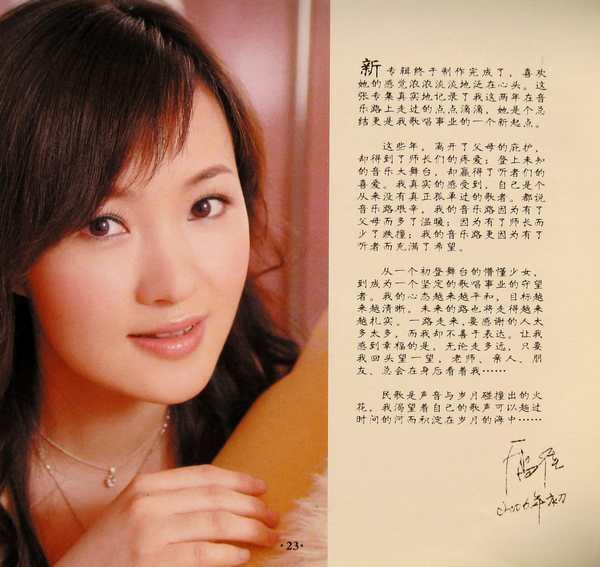 新专辑终于制作完成了，喜欢
她的感觉浓浓淡淡地泛在心头。这
张专集真实地记录了我这两年在音
乐路上走过的点点滴滴，她是个总
结更是我歌唱事业的一个新起点。
这些年，离开了父母的庇护，
却得到了师长们的疼爱；登上未知
的音乐大舞台，却赢得了听者们的
喜爱。我真实的感受到，自己是个
从来没有真正孤单过的歌者。都说
音乐路艰辛，我的音乐路因为有了
父母而多了温暖；因为有了师长而
少了跌撞；我的音乐路更因为有了
听者而充满了希望。
从一个初登舞台的懵懂少女，
到成为一个坚定的歌唱事业的守望
者。我的心态越来越平和，目标越
来越清晰。未来的路也将走得越来
越扎实。一路走来，要感谢的人太
多太多。而我却不善于表达。让我
感到幸福的是，无论走多远，只要
我回头望一望，老师、亲人、朋
友、总会在身后看着我……
民歌是声音与岁月碰撞出的火
花，我渴望着自己的歌声可以越过
时间的河而积淀在岁月的海中……
·23·